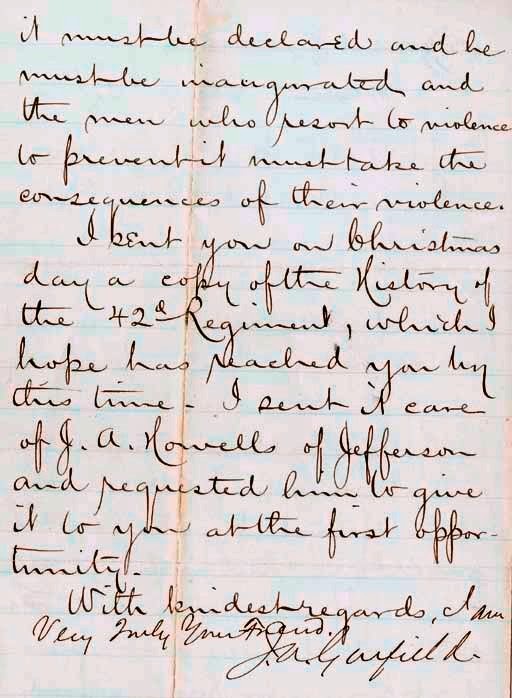 it must be declared and he
must be inaugurated and
the men who resort to violence
to prevent it must take the
consequences of their violence.
I sent you on Christmas
day a copy of the History of
the 42d Regiment, which I
hope has reached you by
this time - I sent it care
of J. A. Howells of Jefferson
and requested him to give
it to you at the first oppor-
tunity.
With kindest regards, I am
Very Truly Your Friend.
J. A. Garfield.